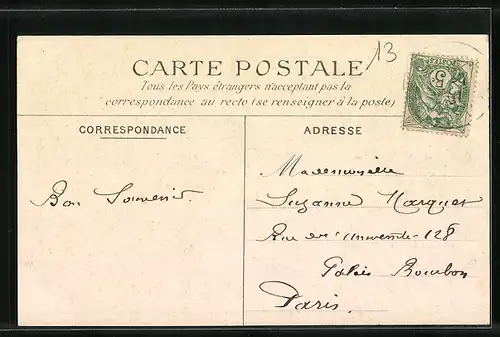 13
CARTE POSTALE
Tous les Pays étrangers n'acceptant pas la
correspondance au recto (se renseigner à la poste)
CORRESPONDANCE
ADRESSE
Bon Souvenir.
Mademoiselle
Suzanne Marquet
Rue de l'université 128
Palais Bourbon
Paris.